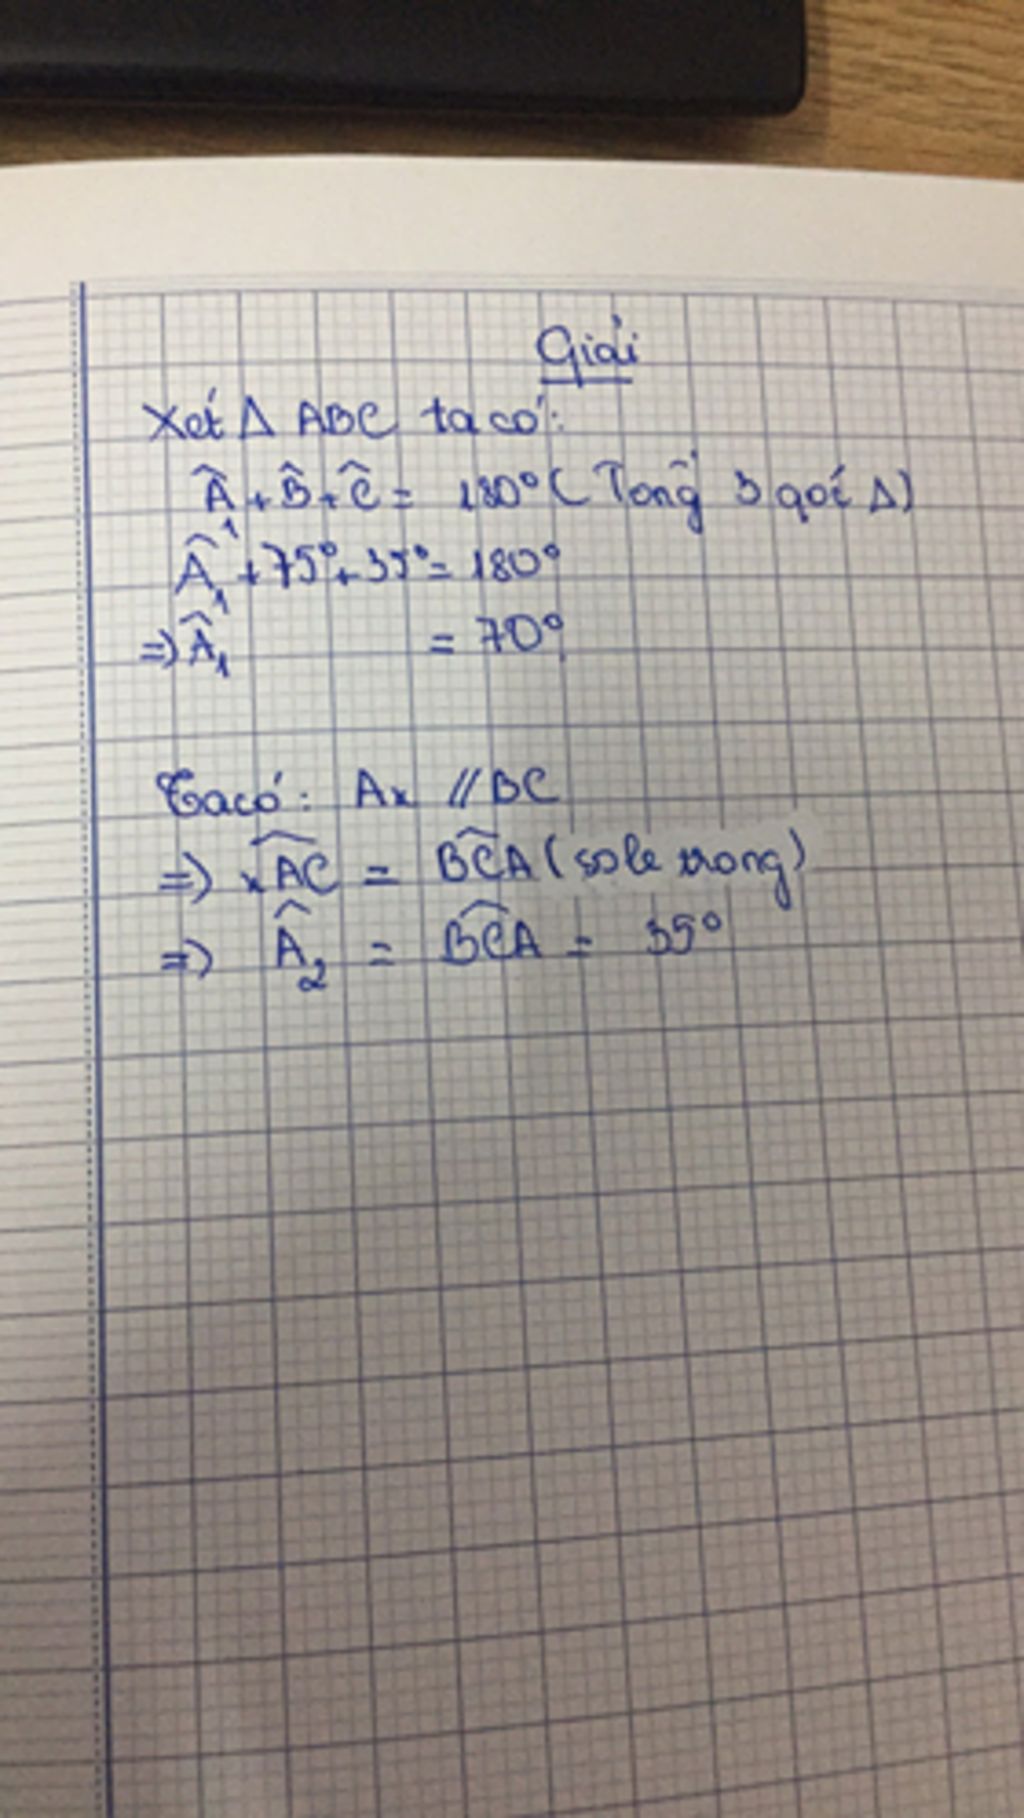 Giải
Xét Δ ABC ta có:
Â + B̂ + Ĉ = 180° (Tổng 3 góc Δ)
Â₁ + 75° + 35° = 180°
=> Â₁ = 70°
Ta có: Ax // BC
=> x͡AC = BĈA (sole trong)
=> Â₂ = BĈA = 35°